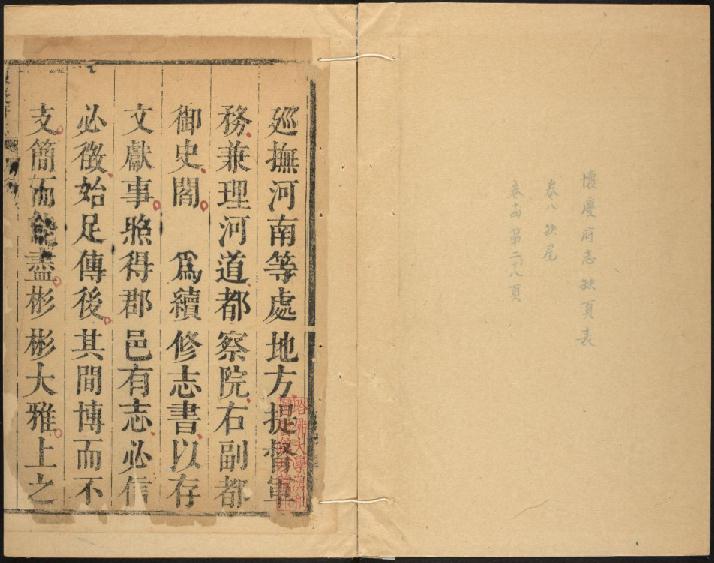 懷慶府志缺頁表
卷八缺尾
巡撫河南等處地方提督軍
務兼理河道都察院右副都
御史閻 爲續修志書以存
文獻事照得郡邑有志必信
必徵始足傳後其間博而不
支簡而能盡彬彬大雅上之